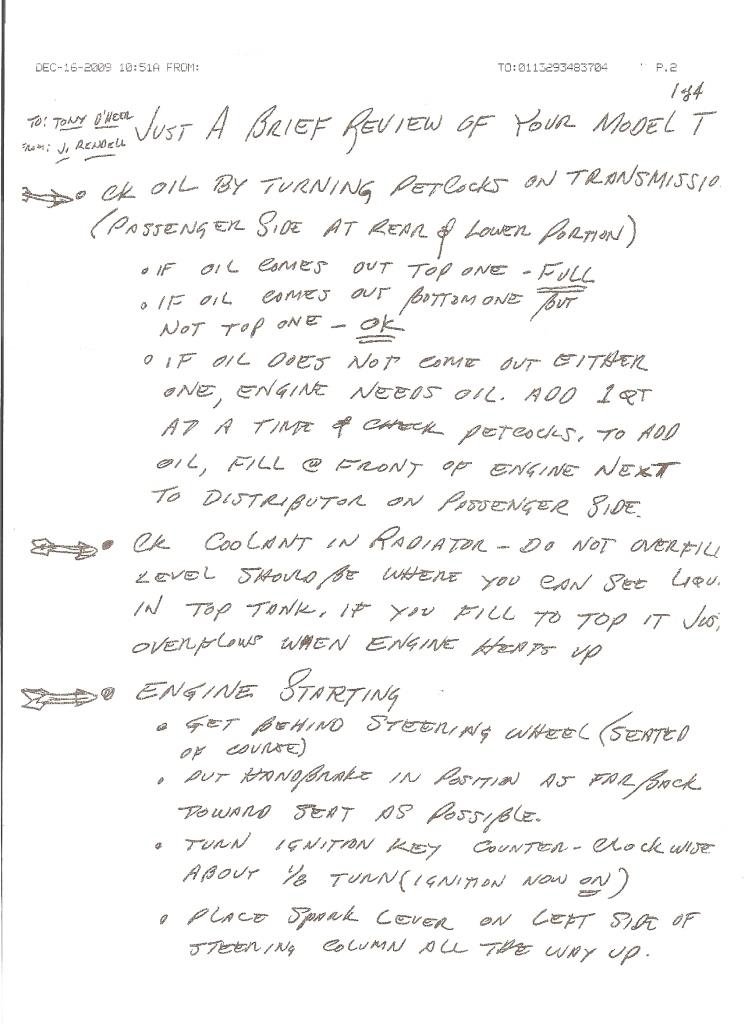 DEC-16-2009 10:51A FROM: TO:0113293483704 P.2
1 of 4
TO: TONY D'HEER
FROM: J. RENDELL
JUST A BRIEF REVIEW OF YOUR MODEL T
CK OIL BY TURNING PETCOCKS ON TRANSMISSIO
(PASSENGER SIDE AT REAR & LOWER PORTION)
• IF OIL COMES OUT TOP ONE - FULL
• IF OIL COMES OUT BOTTOM ONE BUT
NOT TOP ONE - OK
• IF OIL DOES NOT COME OUT EITHER
ONE, ENGINE NEEDS OIL. ADD 1 QT
AT A TIME & CHECK PETCOCKS. TO ADD
OIL, FILL @ FRONT OF ENGINE NEXT
TO DISTRIBUTOR ON PASSENGER SIDE.
• CK COOLANT IN RADIATOR - DO NOT OVERFILL
LEVEL SHOULD BE WHERE YOU CAN SEE LIQU
IN TOP TANK. IF YOU FILL TO TOP IT JUS
OVERFLOWS WHEN ENGINE HEATS UP
• ENGINE STARTING
• GET BEHIND STEERING WHEEL (SEATED
OF COURSE)
• PUT HANDBRAKE IN POSITION AS FAR BACK
TOWARD SEAT AS POSSIBLE.
• TURN IGNITION KEY COUNTER-CLOCKWISE
ABOUT 1/8 TURN (IGNITION NOW ON)
• PLACE SPARK LEVER ON LEFT SIDE OF
STEERING COLUMN ALL THE WAY UP.